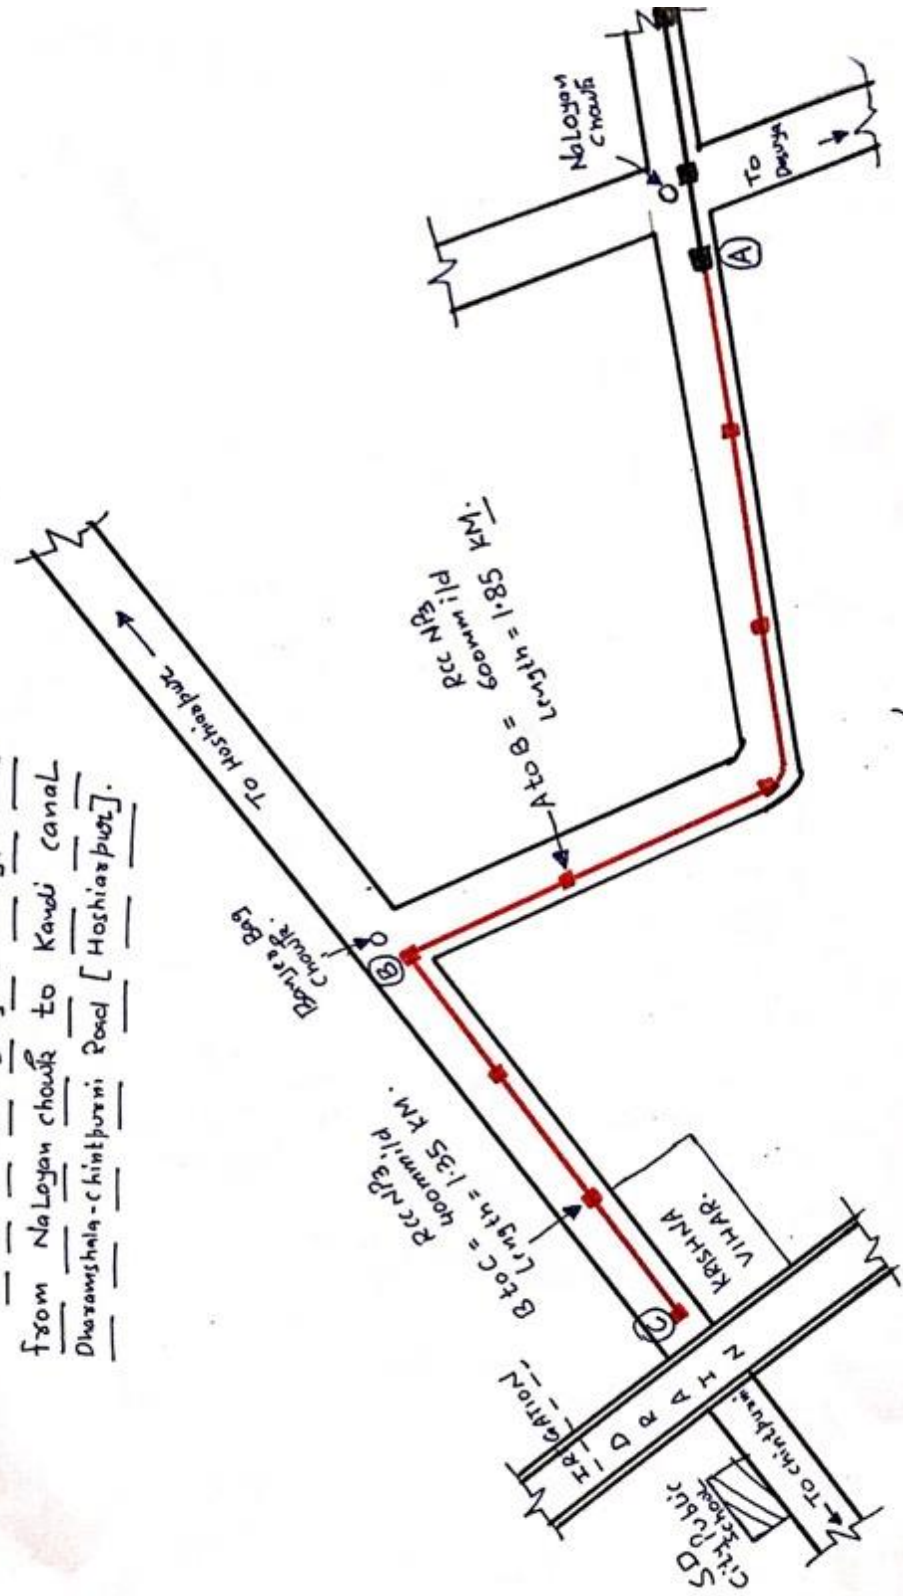 from NaLoyan chowk to Kandi canal
Dharamshala-Chintpurni Road [Hoshiarpur].
NaLoyan
Chowk
To
Dasuya
A
A to B =
RCC NP3
600mm i/d
Length = 1.85 KM.
To Hoshiarpur
Banjra Bag
Chowk.
B
B to C =
RCC NP3
400mm i/d
Length = 1.35 KM.
C
KRISHNA
VIHAR.
IRRIGATION
DRAIN
To Chintpurni
SD
City Public
School